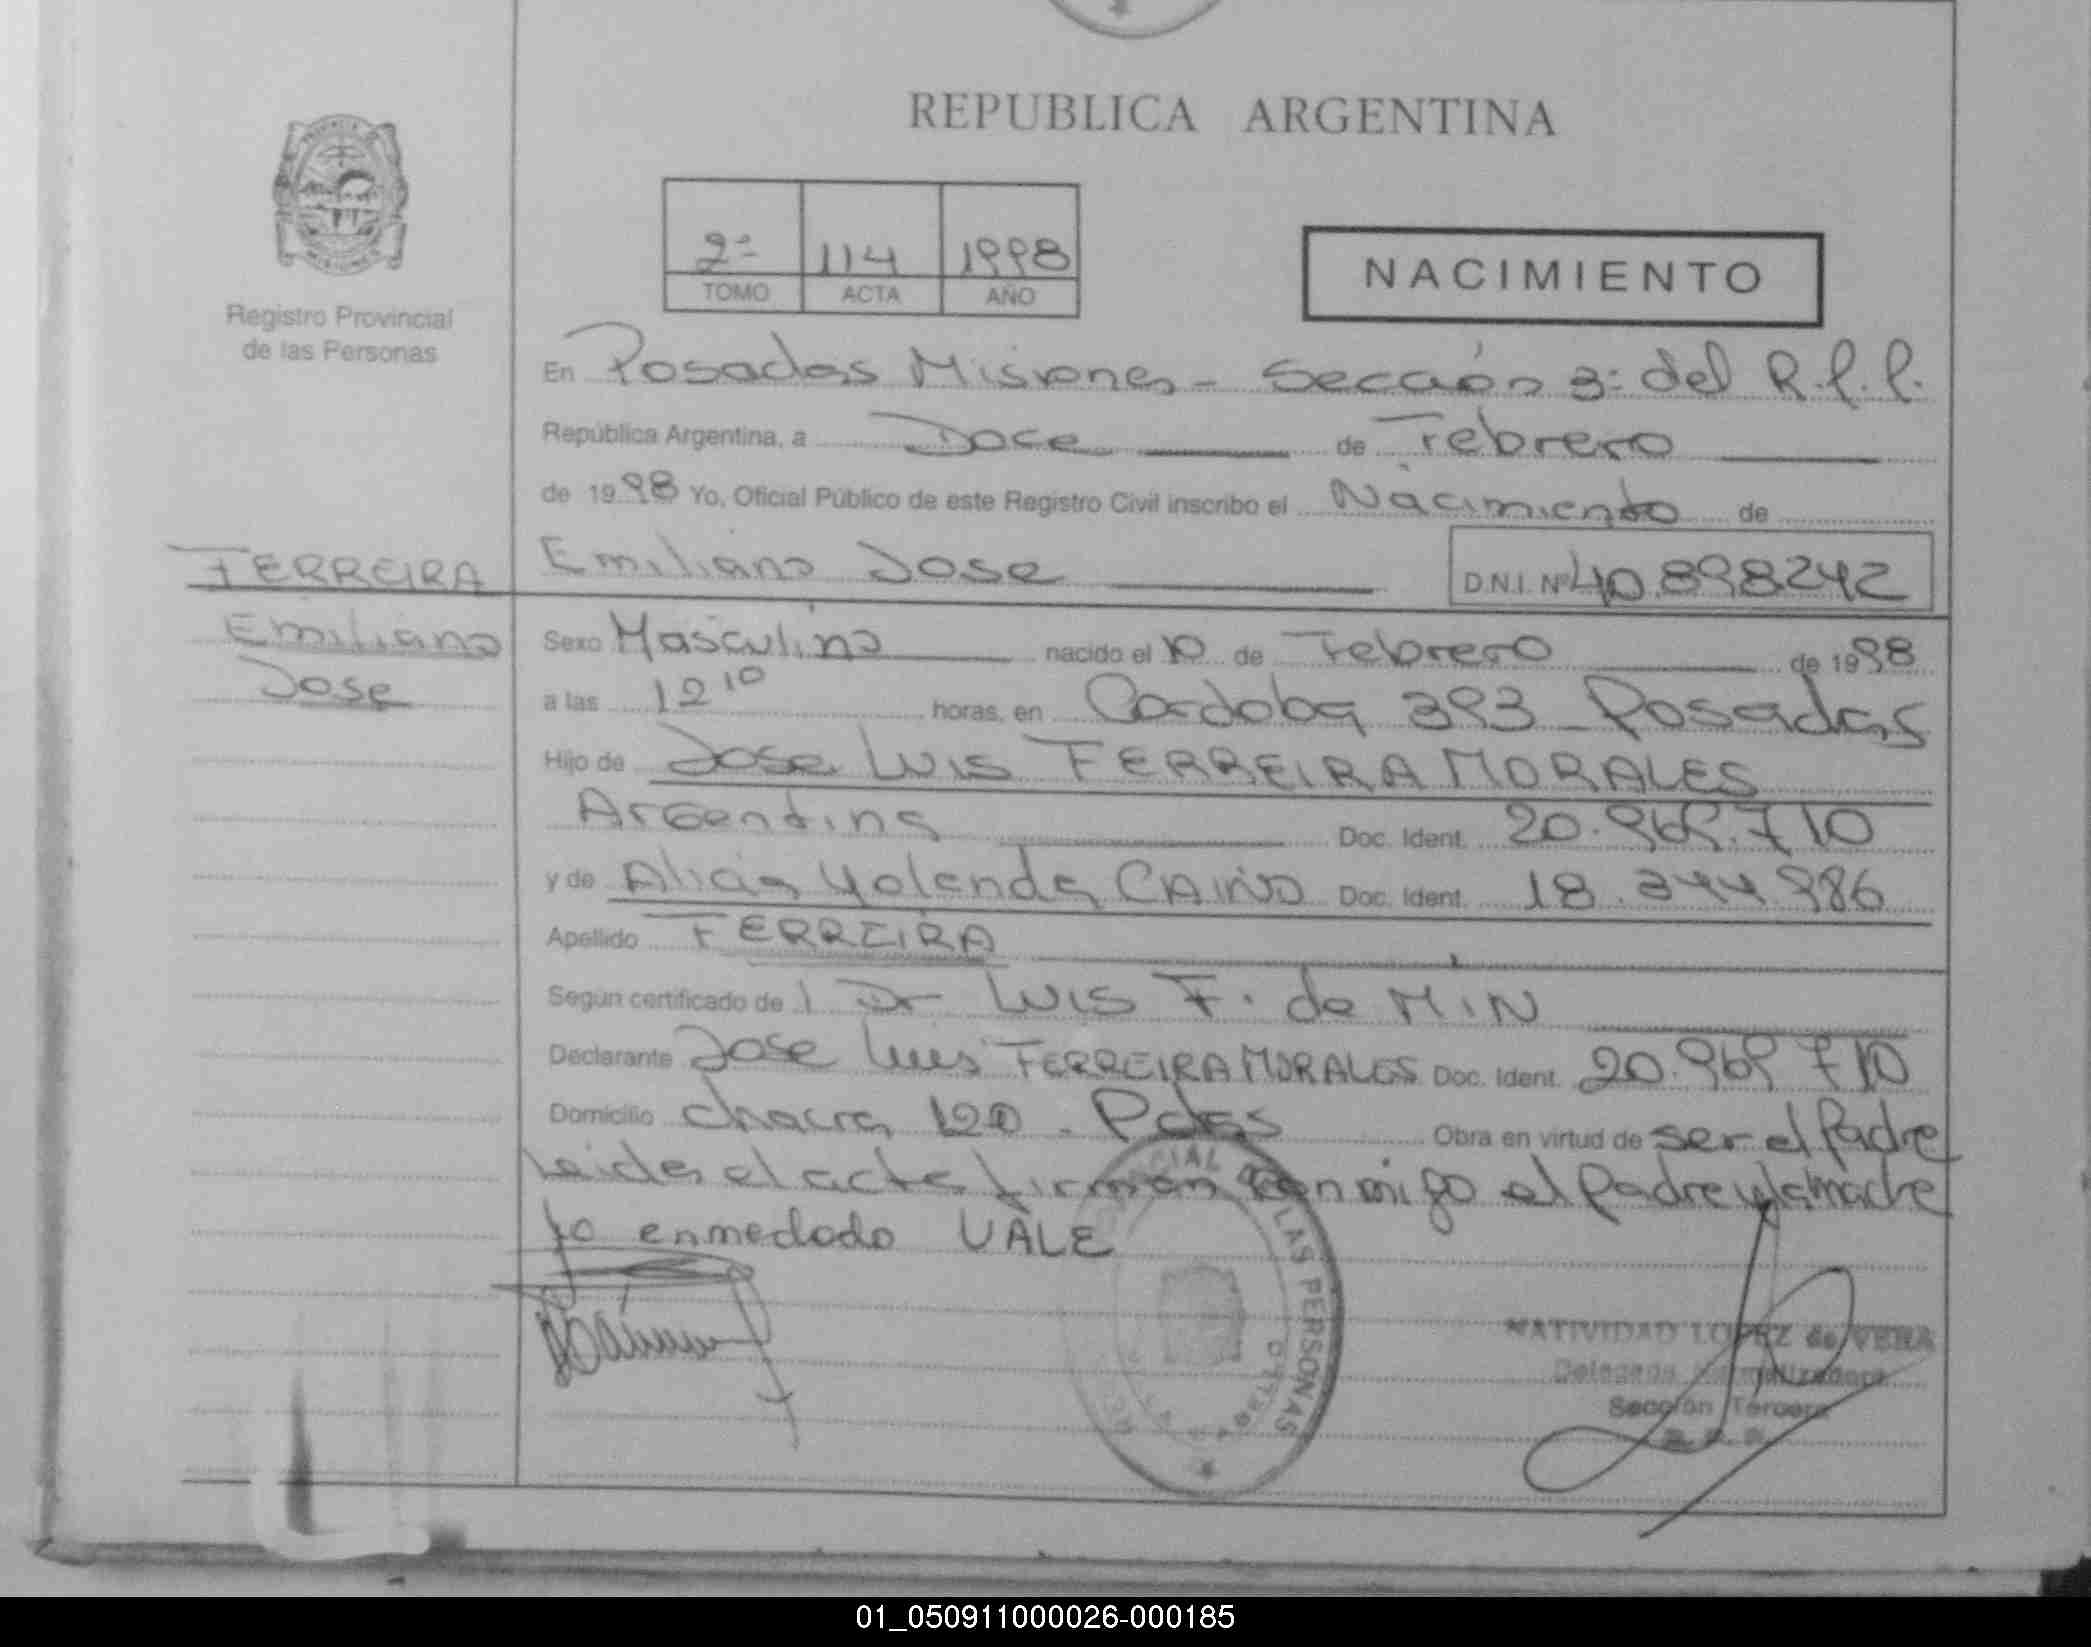 REPUBLICA ARGENTINA
2º 114 1998
TOMO ACTA AÑO
NACIMIENTO
Registro Provincial
de las Personas
En Posadas Misiones - Sección 3º del R.P.P.
República Argentina, a Doce de Febrero
de 1998 Yo, Oficial Público de este Registro Civil inscribo el Nacimiento de
FERREIRA
Emiliano
Jose
Emiliano Jose D.N.I. Nº 40.898242
Sexo Masculino nacido el 10 de Febrero de 1998
a las 12 10 horas, en Cordoba 393 Posadas
Hijo de Jose Luis FERREIRA MORALES
Argentina Doc. Ident. 20.969.710
y de Alicia Yolanda CAINO Doc. Ident. 18.344.986
Apellido FERREIRA
Según certificado de l Dr Luis F. de MIN
Declarante Jose Luis FERREIRA MORALES Doc. Ident. 20.969 710
Domicilio chacra 120 - Pdas Obra en virtud de ser el Padre
Leida el acta firman conmigo el padre y la madre
lo enmedado VALE
LAS PERSONAS
NATIVIDAD LOPEZ de VERA
Delegada Normalizadora
Sección Tercera
R. P. P.
01_050911000026-000185